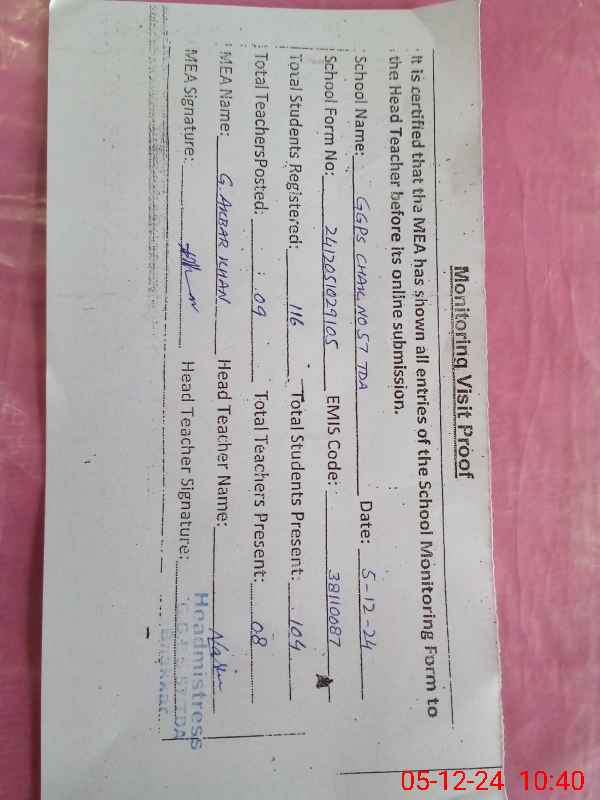 Monitoring Visit Proof
It is certified that the MEA has shown all entries of the School Monitoring Form to
the Head Teacher before its online submission.
School Name: GGPS CHAK NO 57 TDA Date: 5-12-24
School Form No: 2412051029105 EMIS Code: 38110087
Total Students Registered: 116 Total Students Present: 104
Total TeachersPosted: 09 Total Teachers Present: 08
MEA Name: G. AKBAR KHAN Head Teacher Name:
MEA Signature: Head Teacher Signature:
Headmistress
TDA
05-12-24 10:40